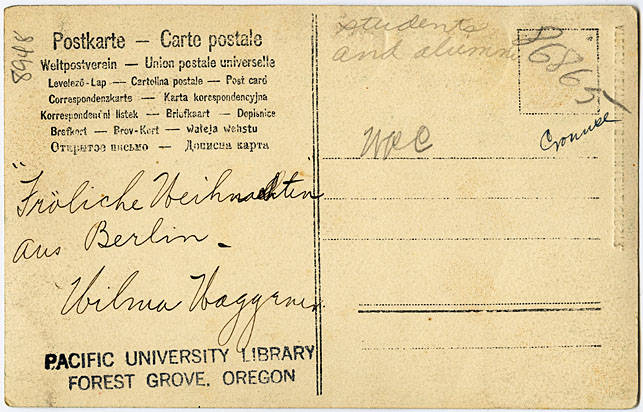 8948
Postkarte — Carte postale
Weltpostverein — Union postale universelle
Levelező-Lap — Cartolina postale — Post card
Correspondenzkarte — Karta korespondencyjna
Korrespondenční lístek — Briefkaart — Dopisnice
Brefkort — Brev-Kort — waleja wehstu
Открытое письмо — Дописна карта
students
and alumni
P6865
Cronise
WPC
"Fröliche Weihnachten"
aus Berlin –
Wilma Waggener
PACIFIC UNIVERSITY LIBRARY
FOREST GROVE, OREGON